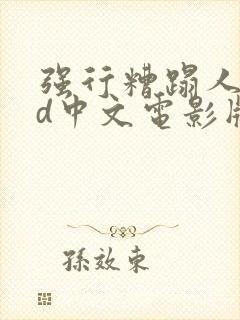 强行糟蹋人
d中文電影版
孫效東